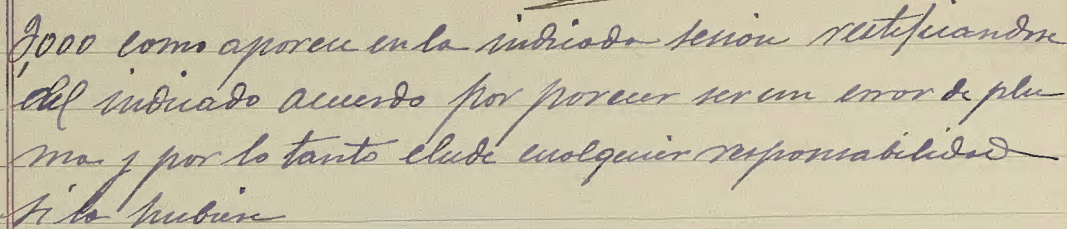 2000 como aparece en la indicada sesion rectificandose
del indicado acuerdo por parecer ser un error de plu
ma y por lo tanto elude cualquier responsabilidad
si la hubiere